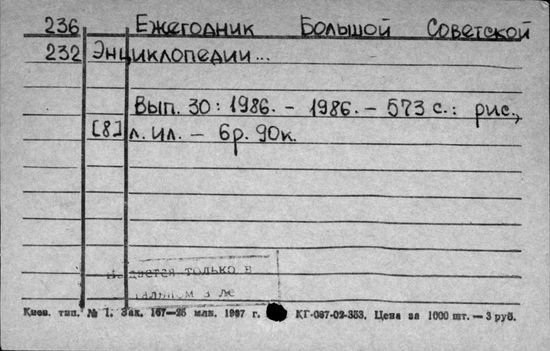 236 Ежегодник Большой Советской
232 Энциклопедии...
Вып. 30: 1986. – 1986. – 573 с.: рис.,
[8] л. ил. – 6р. 90к.
только в
Киев. тип. № 1. Зак. 167—25 млн. 1987 г. КГ-087-02-353. Цена за 1000 шт. — 3 руб.